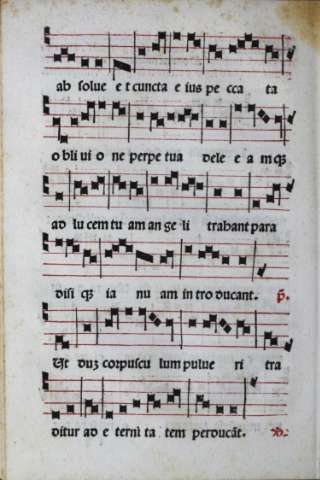 ab solue e t cuncta e ius pe cca ta
o bli ui o ne perpe tua dele e a m qȝ
ad lu cem tu am an ge li trabant para
disi qȝ ia nu am in tro ducant. p̄.
Ut duȝ corpuscu lum pulue ri tra
ditur ad e terni ta tem perducāt.